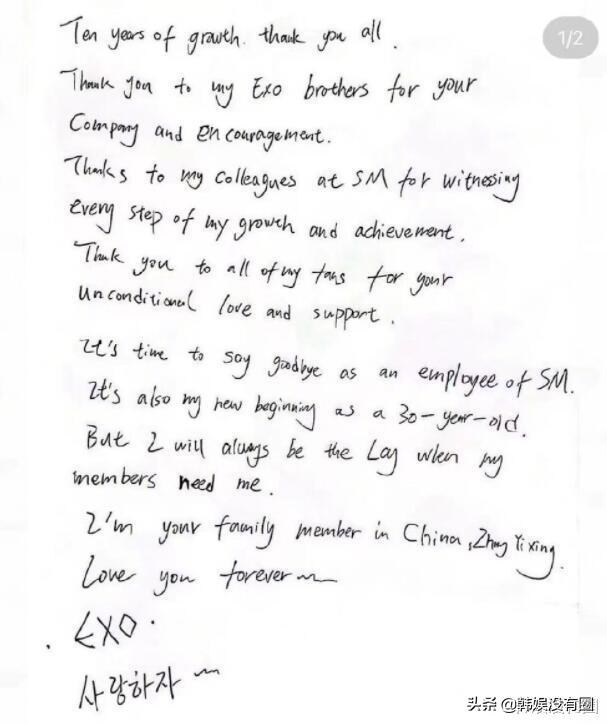 Ten years of growth. thank you all.
1/2
Thank you to my Exo brothers for your
Company and encouragement.
Thanks to my colleagues at SM for witnessing
every step of my growth and achievement.
Thank you to all of my fans for your
unconditional love and support.
It's time to say goodbye as an employee of SM.
It's also my new beginning as a 30-year-old.
But I will always be the Lay when my
members need me.
I'm your family member in China, Zhang Yixing.
Love you forever~
EXO.
사랑하자~
头条 @韩娱没有圈